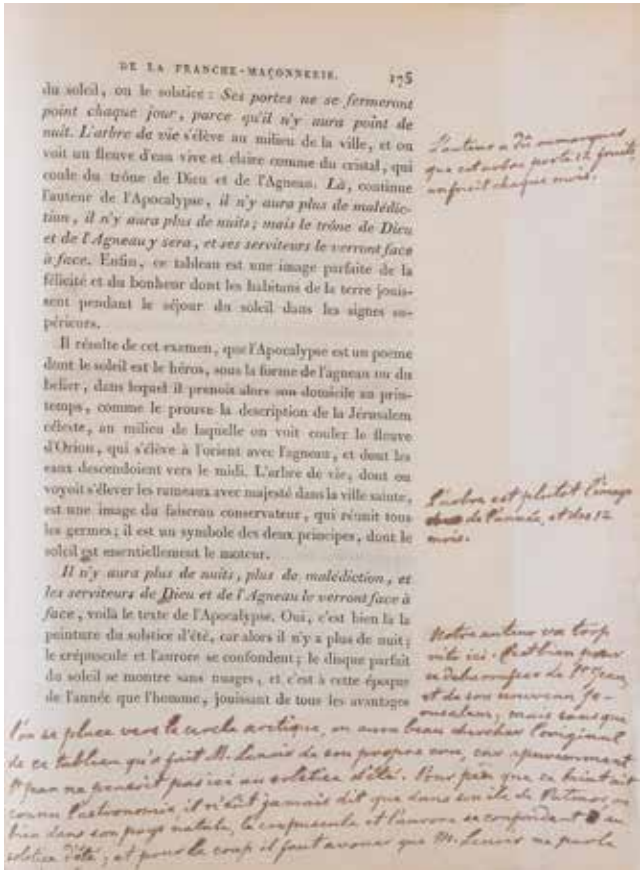 DE LA FRANCHE-MAÇONNERIE. 175
du soleil, ou le solstice : Ses portes ne se fermeront
point chaque jour, parce qu'il n'y aura point de
nuit. L'arbre de vie s'élève au milieu de la ville, et on
voit un fleuve d'eau vive et claire comme du cristal, qui
coule du trône de Dieu et de l'Agneau. Là, continue
l'auteur de l'Apocalypse, il n'y aura plus de malédic-
tion, il n'y aura plus de nuits; mais le trône de Dieu
et de l'Agneau y sera, et ses serviteurs le verront face
à face. Enfin, ce tableau est une image parfaite de la
félicité et du bonheur dont les habitans de la terre jouis-
sent pendant le séjour du soleil dans les signes su-
périeurs.
Il résulte de cet examen, que l'Apocalypse est un poème
dont le soleil est le héros, sous la forme de l'agneau ou du
belier, dans lequel il prenoit alors son domicile au prin-
temps, comme le prouve la description de la Jérusalem
céleste, au milieu de laquelle on voit couler le fleuve
d'Orion, qui s'élève à l'orient avec l'agneau, et dont les
eaux descendoient vers le midi. L'arbre de vie, dont on
voyoit s'élever les rameaux avec majesté dans la ville sainte,
est une image du faisceau conservateur, qui réunit tous
les germes; il est un symbole des deux principes, dont le
soleil est essentiellement le moteur.
Il n'y aura plus de nuits, plus de malédiction, et
les serviteurs de Dieu et de l'Agneau le verront face à
face, voilà le texte de l'Apocalypse. Oui, c'est bien là la
peinture du solstice d'été, car alors il n'y a plus de nuit;
le crépuscule et l'aurore se confondent; le disque parfait
du soleil se montre sans nuages, et c'est à cette époque
de l'année que l'homme, jouissant de tous les avantages
L'auteur a dû remarquer
que cet arbre porte 12 fruits,
un fruit chaque mois.
L'arbre est plutot l'image
de l'année, et des 12
mois.
Notre auteur va trop
vite ici.
de St Jean,
et de son nouveau Je-
rusalem; mais sans que
l'on se place vers le cercle arctique, on aura beau chercher l'original
de ce tableau qu'a fait M. Lenoir de son propre cru, car apurement
St Jean ne pensait pas ici au solstice d'été. Pour peu que ce
connu l'astronomie il n'eût jamais dit que dans son ile de Patmos, ou
bien dans son pays natale, le crepuscule et l'aurore se confondent au
solstice d'été; et pour le coup il faut avouer que M. Lenoir ne parle